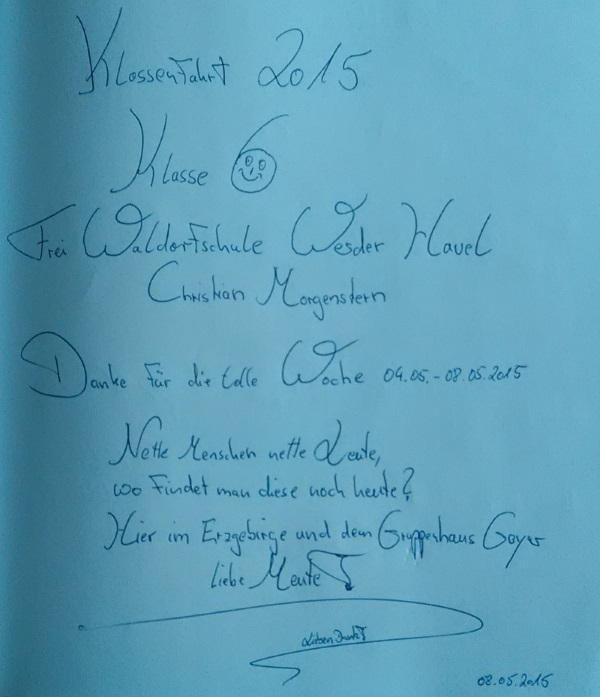 Klassenfahrt 2015
Klasse 6
Frei Waldorfschule Wesder Havel
Christian Morgenstern
Danke für die tolle Woche 04.05.-08.05.2015
Nette Menschen nette Leute,
wo findet man diese noch heute?
Hier im Erzgebirge und dem Gruppenhaus Geyer
liebe Meute
Lieben Dank
08.05.2015